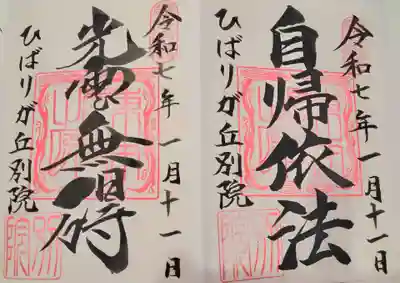 令和七年一月十一日
自帰依法
ひばりが丘別院
令和七年一月十一日
光雲無碍
ひばりが丘別院